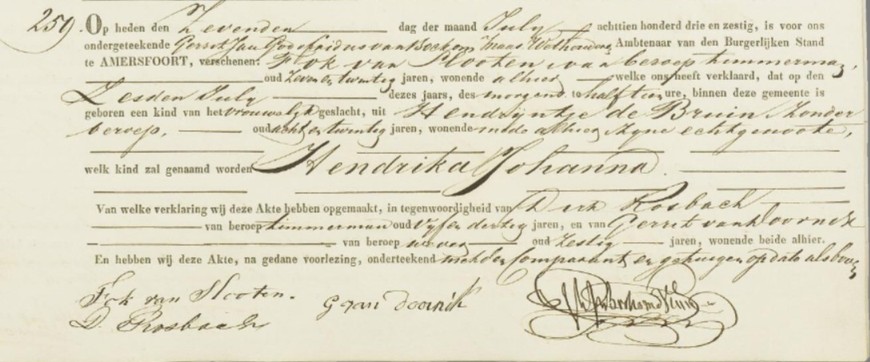 259. Op heden den Zevenden dag der maand July achttien honderd drie en zestig, is voor ons
ondergeteekende Gerret Jan Godefridus van Wethouder, Ambtenaar van den Burgerlijken Stand
te AMERSFOORT, verschenen: Fok van Slooten van beroep timmerman,
oud zeven en twintig jaren, wonende alhier welke ons heeft verklaard, dat op den
Zesden July dezes jaars, des morgens te half tien ure, binnen deze gemeente is
geboren een kind van het vrouwelijk geslacht, uit Hendrijntje de Bruin zonder
beroep, oud acht en twintig jaren, wonende mede alhier zijne echtgenoote,
welk kind zal genaamd worden Hendrika Johanna.
Van welke verklaring wij deze Akte hebben opgemaakt, in tegenwoordigheid van Dirk Rosbach
van beroep timmerman oud vyf en dertig jaren, en van Gerret van Doornik
van beroep wever oud Zestig jaren, wonende beide alhier.
En hebben wij deze Akte, na gedane voorlezing, onderteekend met den Comparant en getuigen op dato als boven,
Fok van Slooten. G van Doornik
D. Rosbach